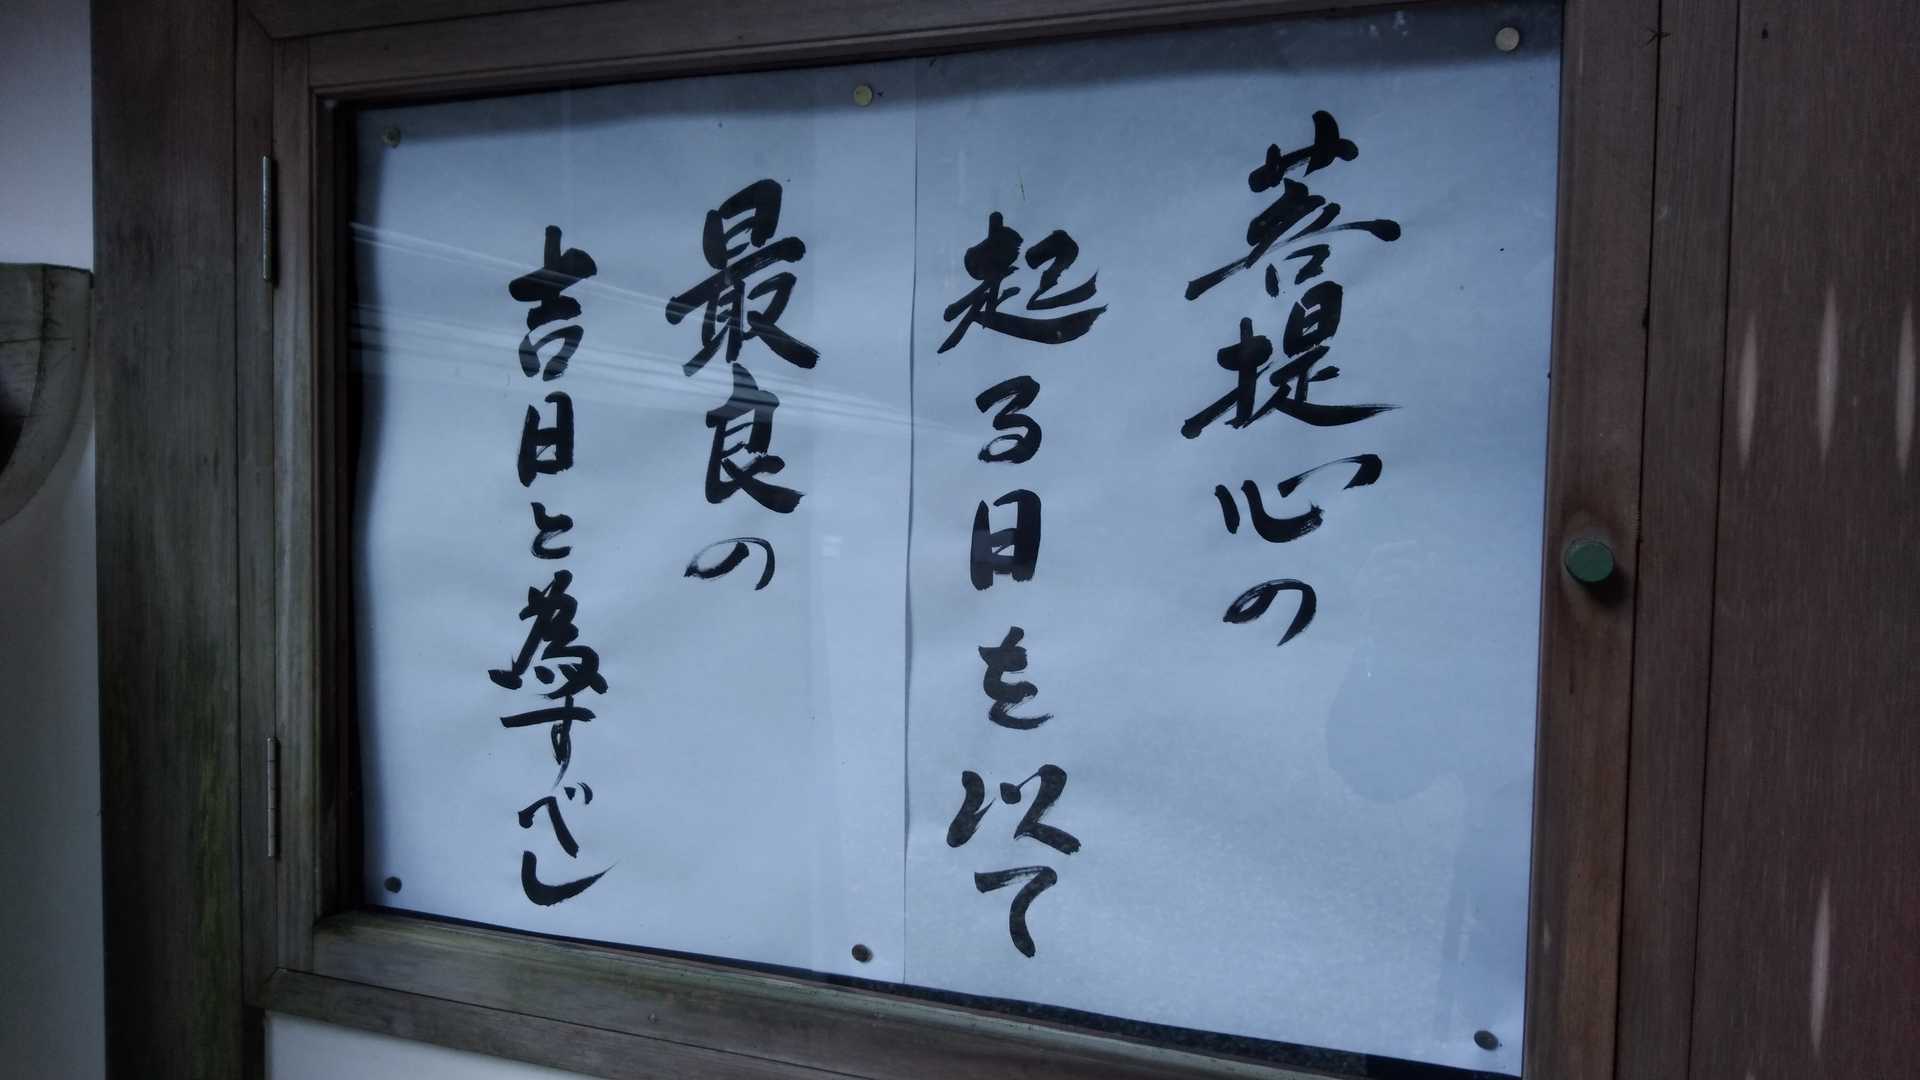 菩提心の
起る日を以て
最良の
吉日と為すべし